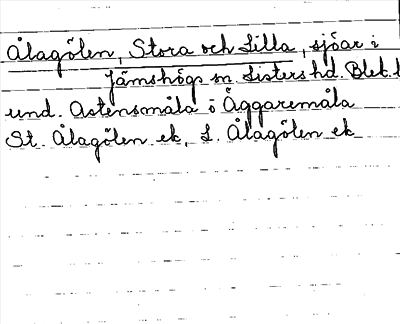 Ålagölen, Stora och Lilla, sjöar i
Jämshögs sn. Listers hd. Blek. l
und. Astensmåla o Äggaremåla
St. Ålagölen ek, L. Ålagölen ek